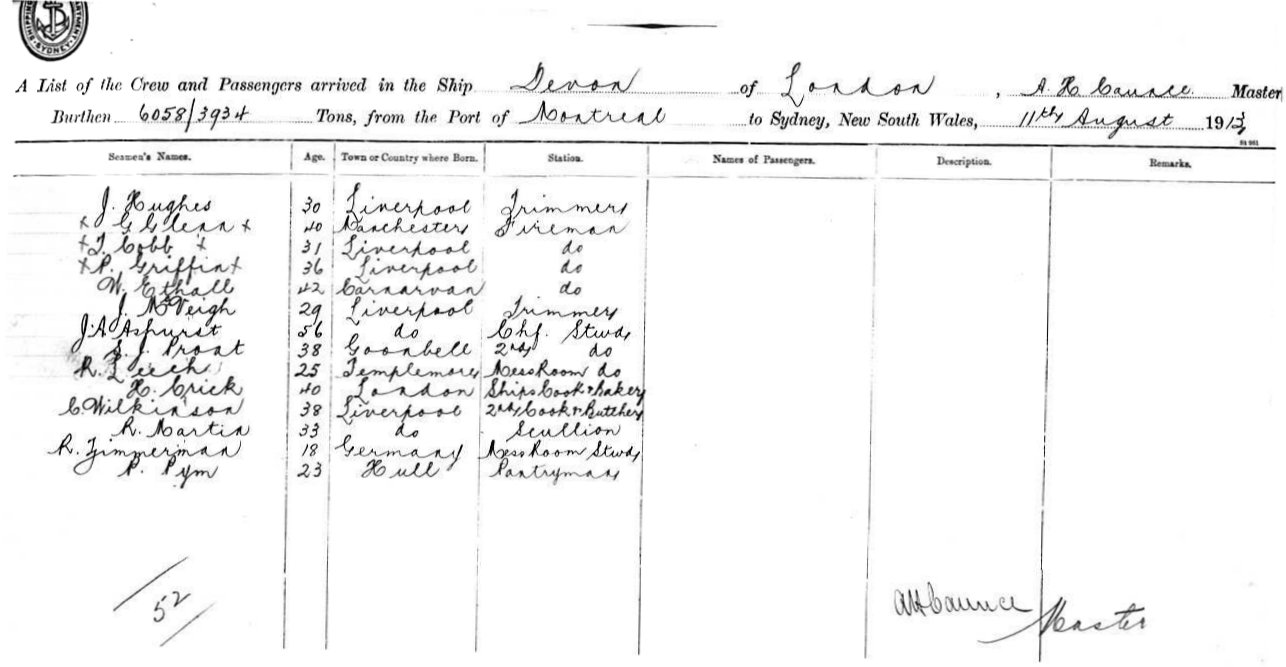 SYDNEY
A List of the Crew and Passengers arrived in the Ship Devon of London, A. H. Caunce. Master
Burthen 6058/3934 Tons, from the Port of Montreal to Sydney, New South Wales, 11th August 1913
Seamen's Names. Age. Town or Country where Born. Station. Names of Passengers. Description. Remarks.
J. Hughes 30 Liverpool Trimmer
x G Glenn x 40 Manchester Fireman
x T. Cobb x 31 Liverpool do
x P. Griffin x 36 Liverpool do
W. Ethall 42 Carnarvan do
J. McVeigh 29 Liverpool Trimmer
J. A Ashurst 56 do Chf. Stwd
S. J. Prout 38 Goonbell 2nd do
R. Leech 25 Templemore Mess Room do
H. Crick 40 London Ships Cook & Baker
C. Wilkinson 38 Liverpool 2nd Cook & Butcher
R. Martin 33 do Scullion
R. Zimmerman 18 Germany Mess Room Stwd
P. Pym 23 Hull Pantryman
52
AH Caunce Master